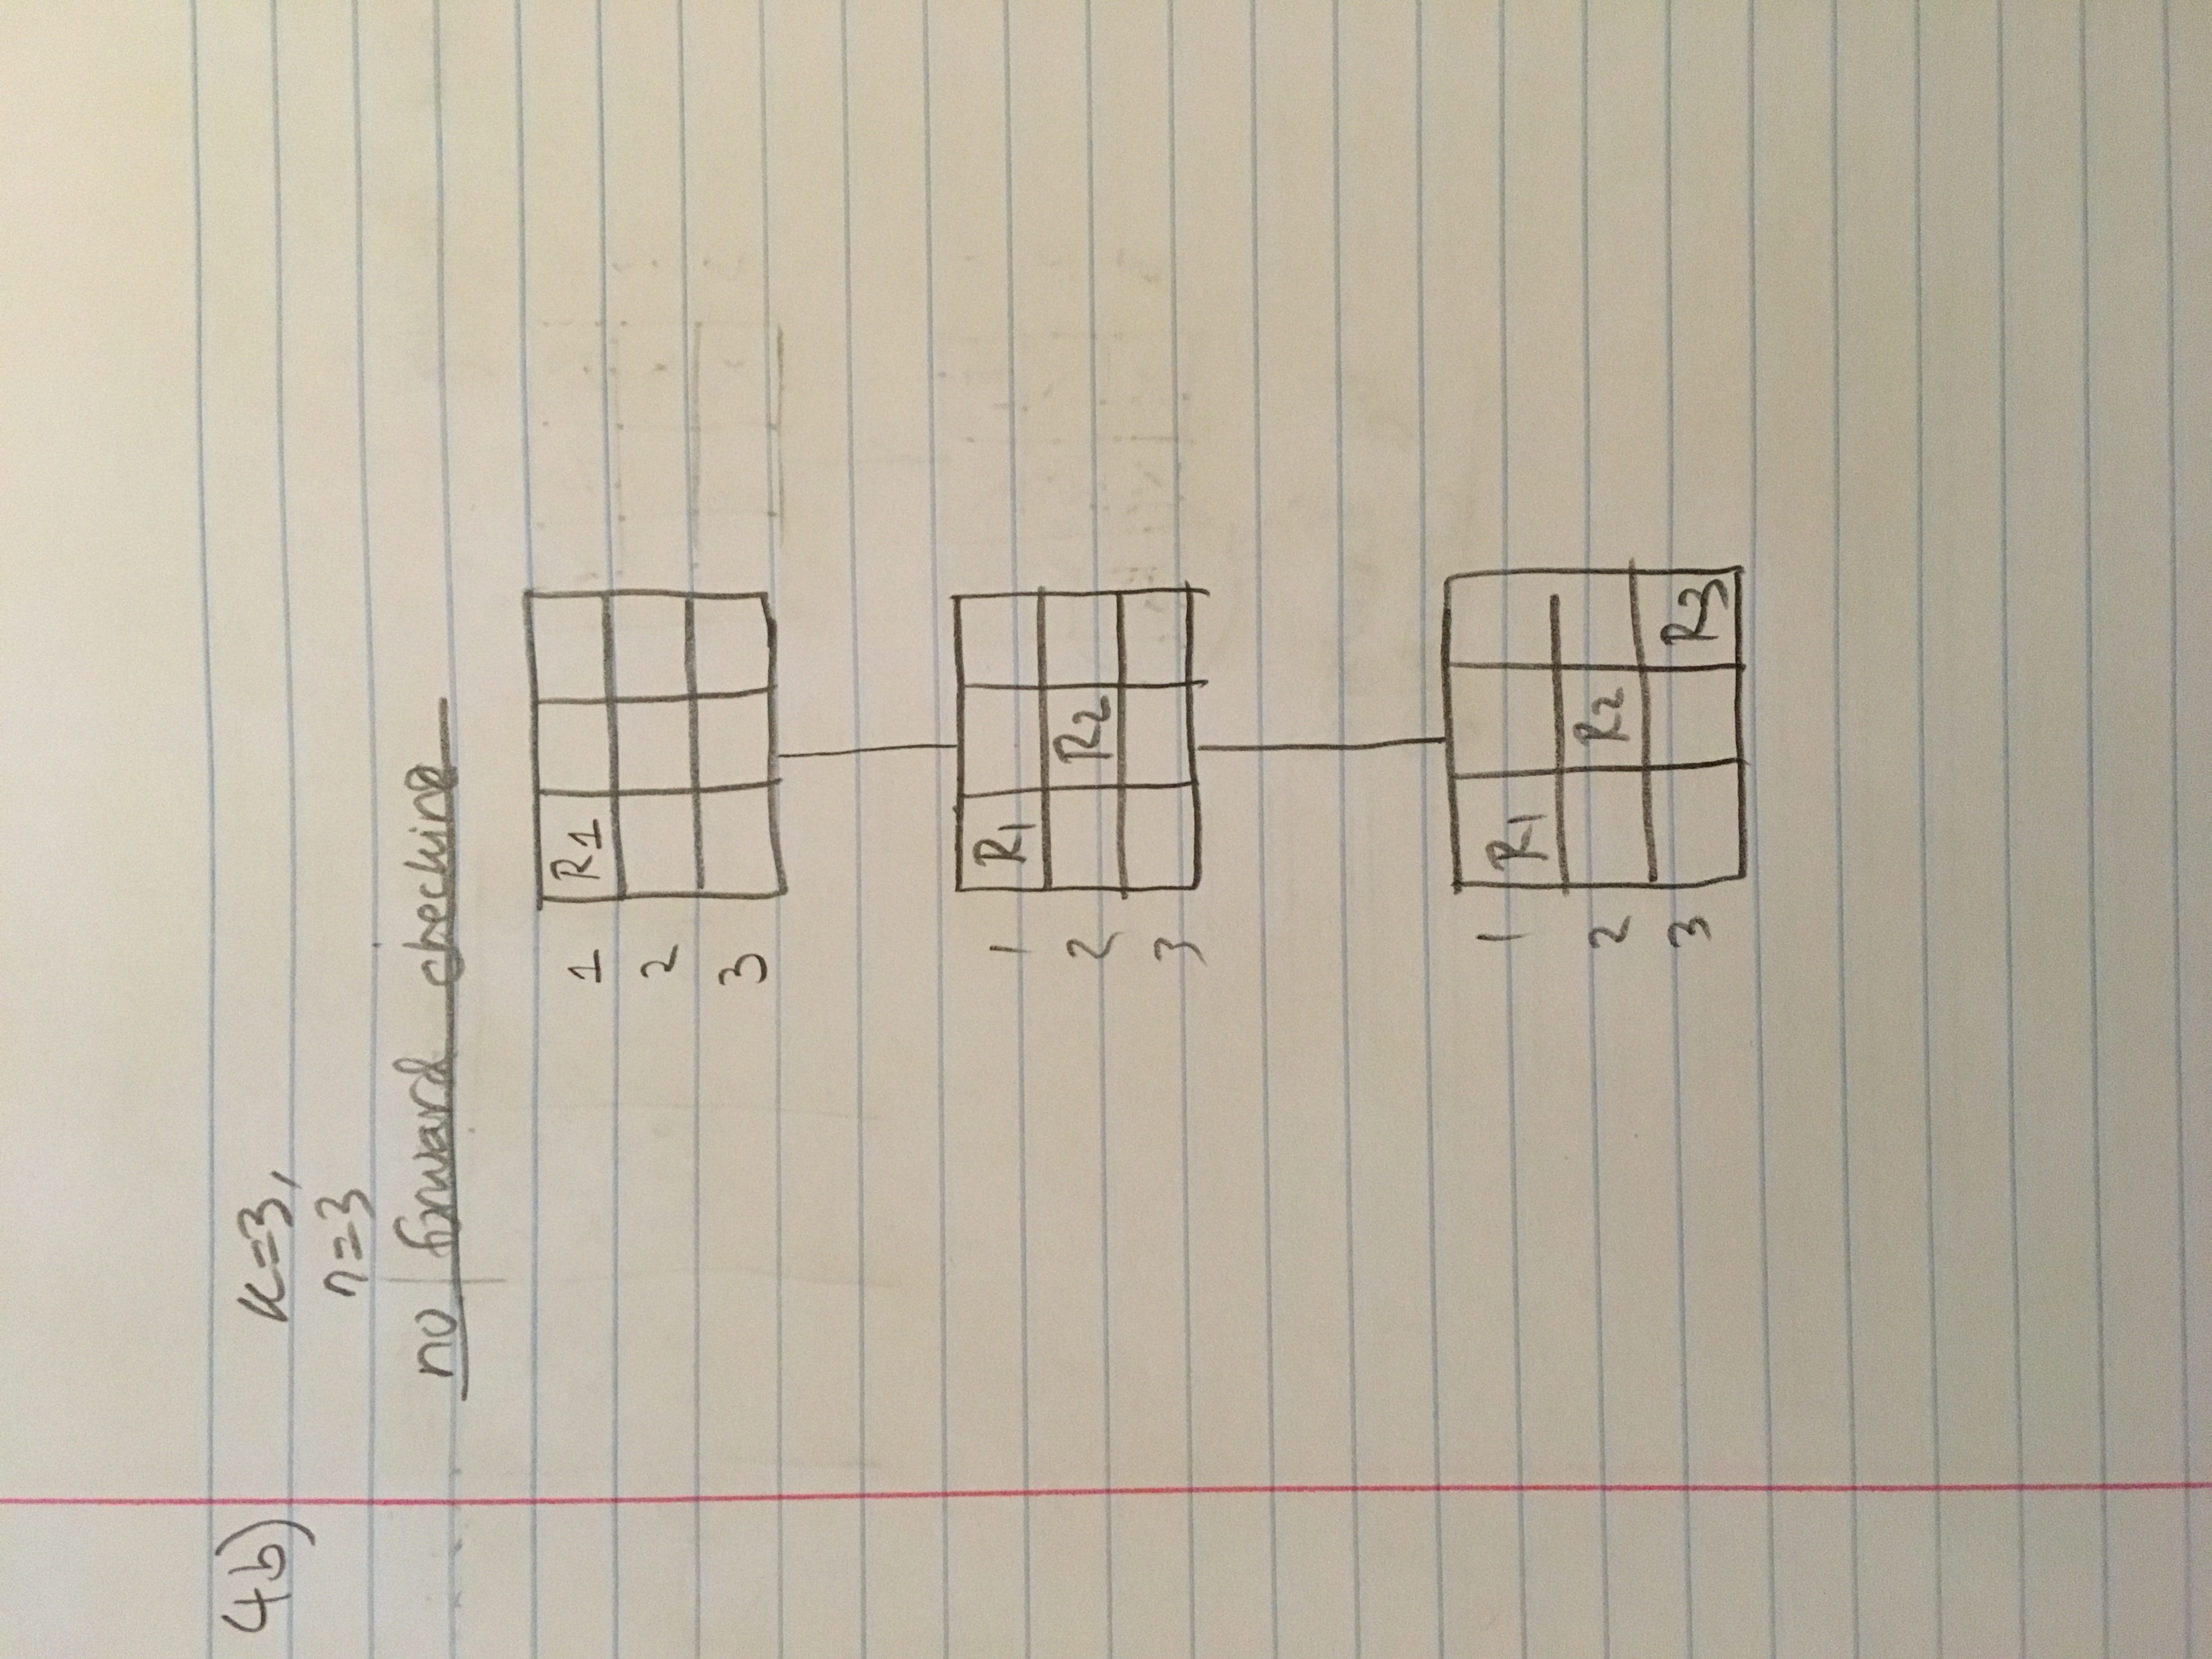 4b) K=3,
n=3
no forward checking
1 R1
2
3
1 R1
2 R2
3
1 R1
2 R2
3 R3